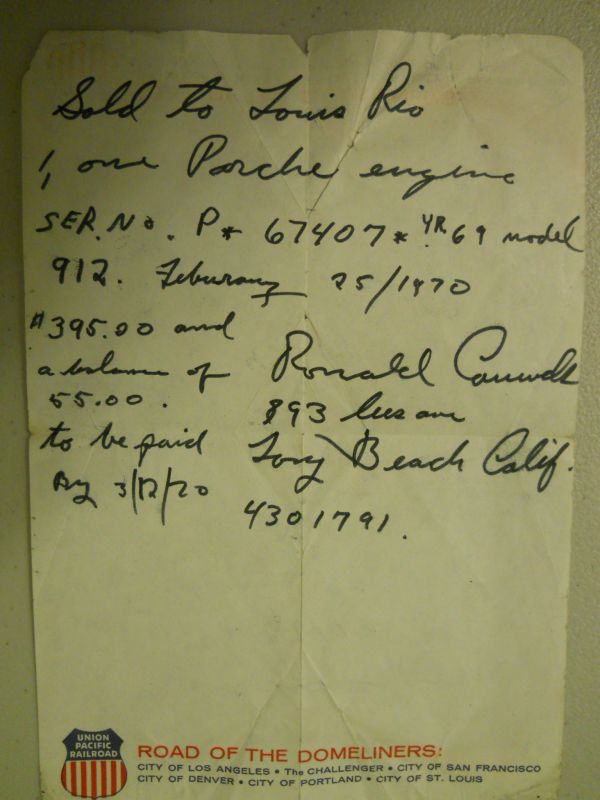 Sold to Louis Rio
1, one Porche engine
SER. No. P* 67407* YR 69 model
912. Feburary 25/1970
$395.00 and
a balance of
55.00.
to be paid
By 3/12/70
Ronald
893 ave
Long Beach Calif.
4301791.
UNION
PACIFIC
RAILROAD
ROAD OF THE DOMELINERS:
CITY OF LOS ANGELES • The CHALLENGER • CITY OF SAN FRANCISCO
CITY OF DENVER • CITY OF PORTLAND • CITY OF ST. LOUIS